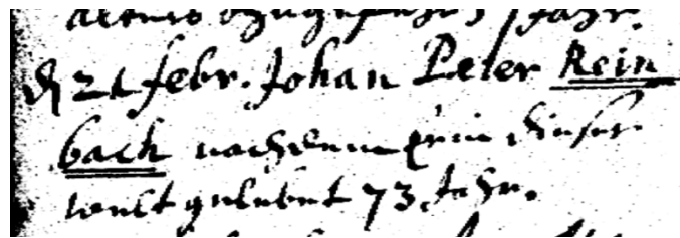 alters ... Jahr.
d 21 febr. Johan Peter Rein
bach nachdem er in dieser
weelt gelebet 73 Jahr.